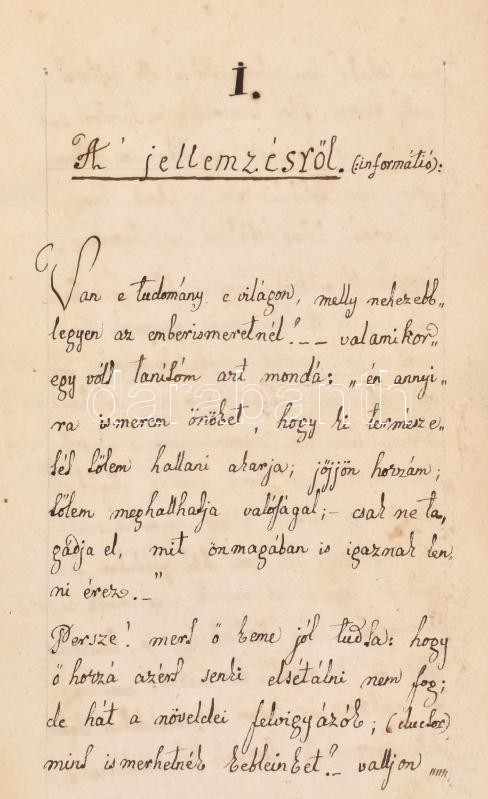 I.
A' jellemzésről. (:informátió):
Van e tudomány e világon, melly nehezebb„
legyen az emberismeretnél? – – valamikor„
egy vólt tanítóm azt mondá: „én annyi„
ra ismerem önöket, hogy ki természe„
tét tőlem hallani akarja; jőjjön hozzám;
tőlem meghallhatja valóságát; – csak ne ta„
gadja el, mit önmagában is igaznak len„
ni érez. –"
Persze! mert ő keme jól tudta: hogy
ő hozzá azért senki elsétálni nem fog;
de hát a növeldei felvigyázók; (ductor)
mint ismerhetnék kebleinket? – valljon „„„
darabanth